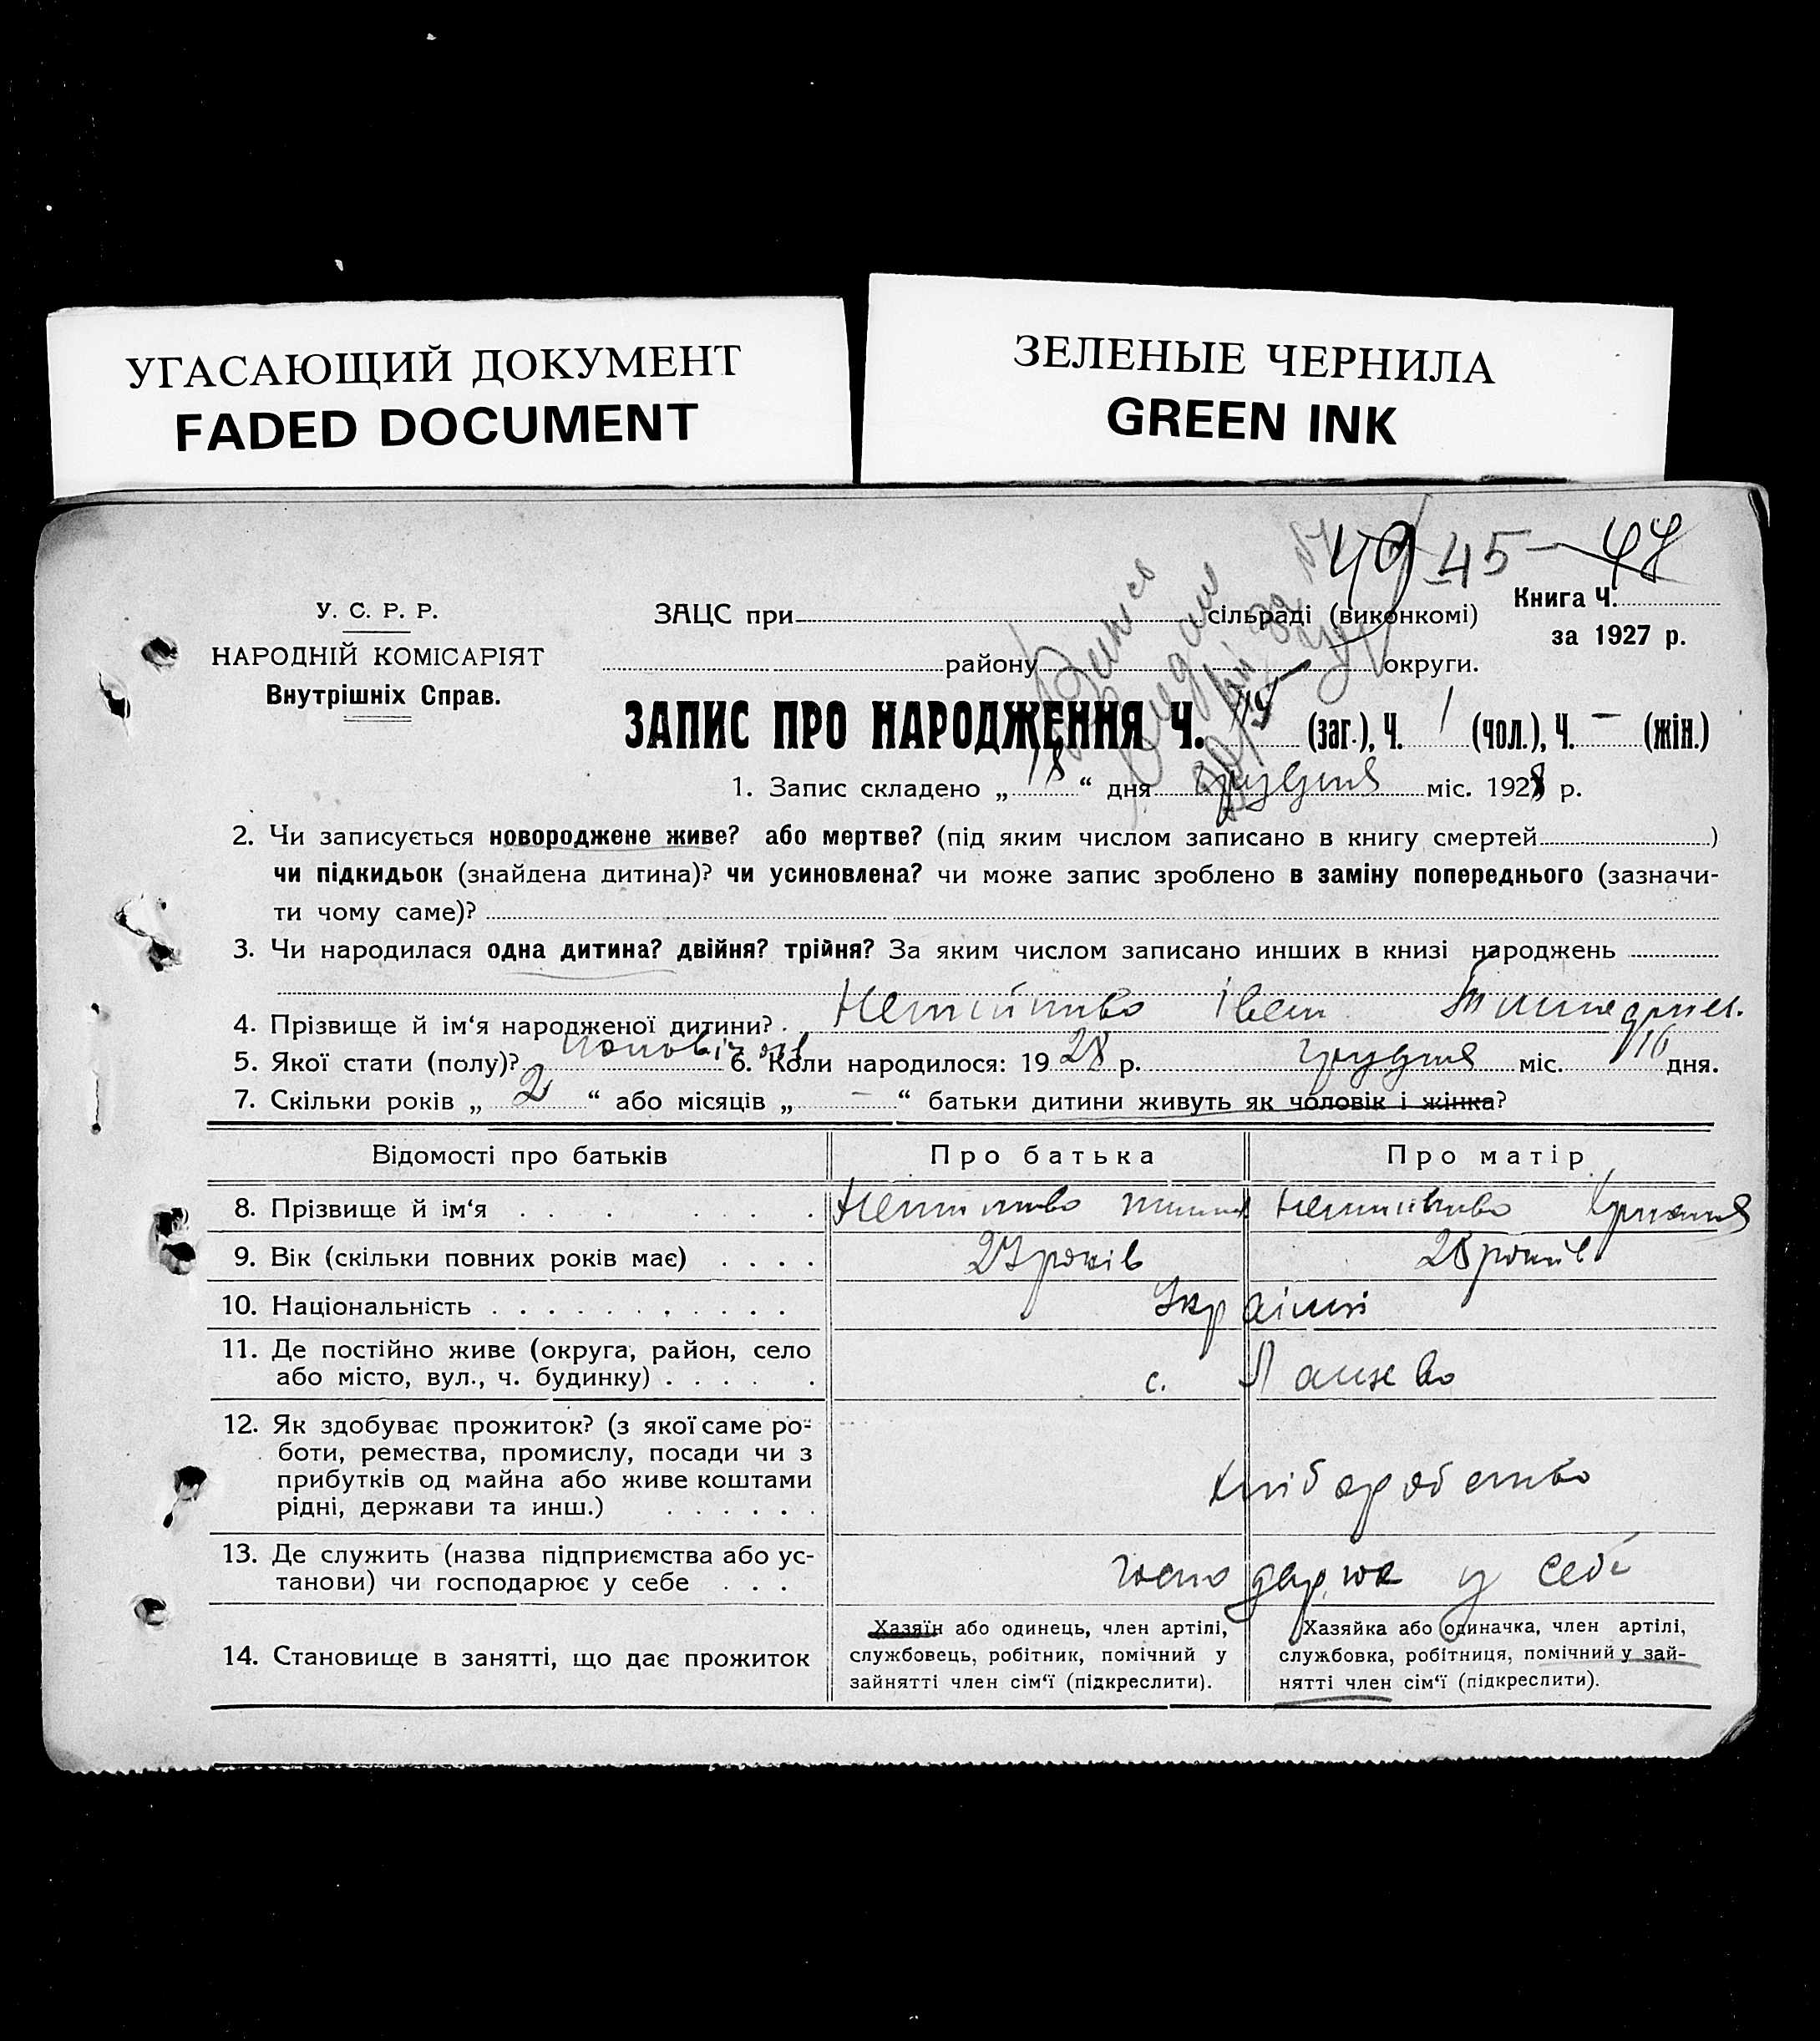 УГАСАЮЩИЙ ДОКУМЕНТ
FADED DOCUMENT
ЗЕЛЕНЫЕ ЧЕРНИЛА
GREEN INK
45 –
У. С. Р. Р.
НАРОДНІЙ КОМІСАРІЯТ
Внутрішніх Справ.
ЗАЦС при сільраді (виконкомі)
Книга Ч.
за 1927 р.
району округи.
ЗАПИС ПРО НАРОДЖЕННЯ Ч. (заг.), Ч. 1 (чол.), Ч. – (жін.)
1. Запис складено „ 18 “ дня грудня міс. 1928 р.
2. Чи записується новороджене живе? або мертве? (під яким числом записано в книгу смертей )
чи підкидьок (знайдена дитина)? чи усиновлена? чи може запис зроблено в заміну попереднього (зазначи-
ти чому саме)?
3. Чи народилася одна дитина? двійня? трійня? За яким числом записано инших в книзі народжень
4. Прізвище й ім‘я народженої дитини? Іван
5. Якої стати (полу)? 6. Коли народилося: 1928 р. грудня міс. 16 дня.
7. Скільки років „ 2 “ або місяців „ – “ батьки дитини живуть як чоловік і жінка?
Відомості про батьків Про батька Про матір
8. Прізвище й ім‘я
9. Вік (скільки повних років має) 27 років 28 років
10. Національність Україні
11. Де постійно живе (округа, район, село
або місто, вул., ч. будинку) с.
12. Як здобуває прожиток? (з якої саме ро-
боти, ремества, промислу, посади чи з
прибутків од майна або живе коштами
рідні, держави та инш.) хліборобство
13. Де служить (назва підприємства або ус-
танови) чи господарює у себе господарює у себе
14. Становище в занятті, що дає прожиток
Хазяїн або одинець, член артілі,
службовець, робітник, помічний у
зайнятті член сім‘ї (підкреслити).
Хазяйка або одиначка, член артілі,
службовка, робітниця, помічний у зай-
нятті член сім‘ї (підкреслити).